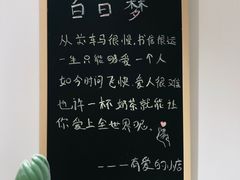 白日梦
从前车马很慢,书信很远
一生只能够爱一个人
如今时间飞快 爱人很难
也许一杯奶茶就能让
你爱上全世界呢。
---有爱的小店